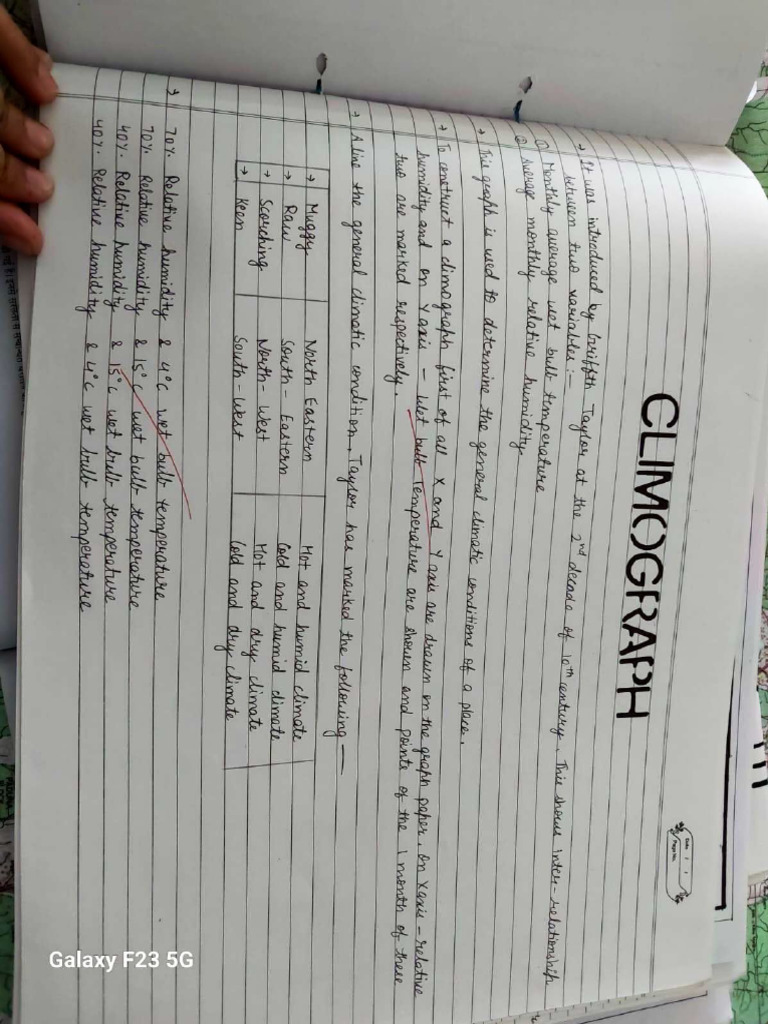 CLIMOGRAPH
Date / /
Page No.
→ It was introduced by Griffith Taylor at the 2nd decade of 10th century. This shows inter-relationship
between two variables:-
① Monthly average wet bulb temperature
② Average monthly relative humidity.
→ This graph is used to determine the general climatic conditions of a place.
→ To construct a climograph first of all X and Y axis are drawn on the graph paper, on X axis - relative
humidity and on Y axis - wet bulb Temperature are shown and points of the 1 month of these
two are marked respectively.
→ A line the general climatic condition, Taylor has marked the following —
→ Muggy North Eastern Hot and humid climate
→ Raw South - Eastern Cold and humid climate
→ Scorching North - West Hot and dry climate
→ Keen South - West Cold and dry climate
→ 70% Relative humidity & 4°C wet bulb temperature
70% Relative humidity & 15°C wet bulb temperature
40% Relative humidity & 15°C wet bulb temperature
40% Relative humidity & 4°C wet bulb temperature
Galaxy F23 5G